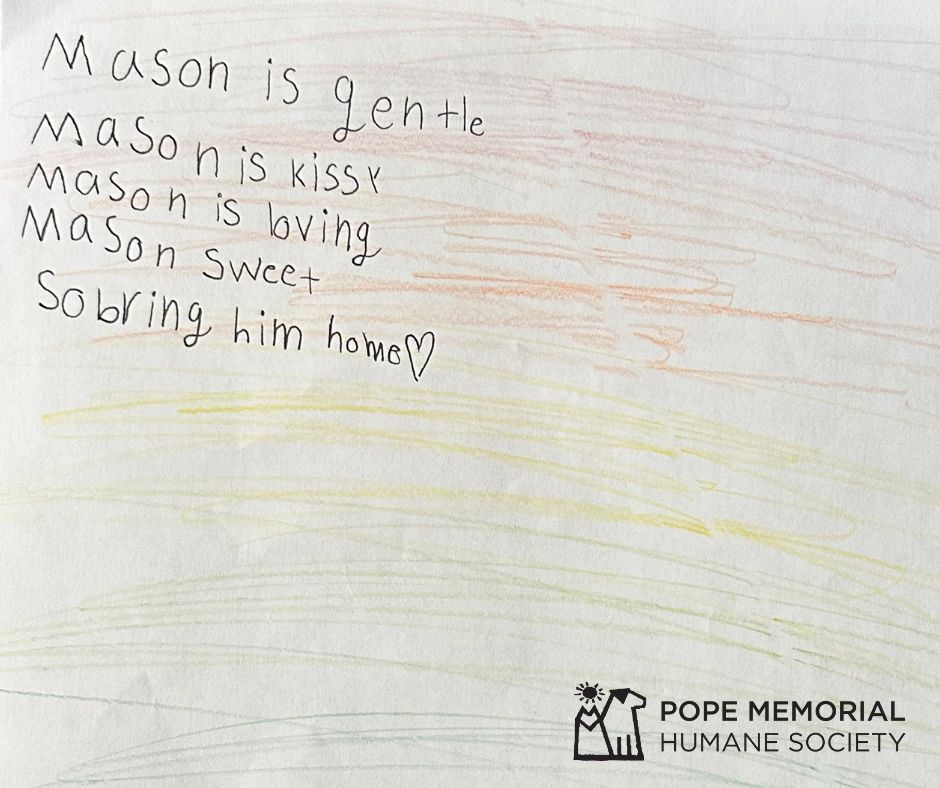 Mason is gentle
Mason is kissy
Mason is loving
Mason sweet
So bring him home♡
POPE MEMORIAL
HUMANE SOCIETY